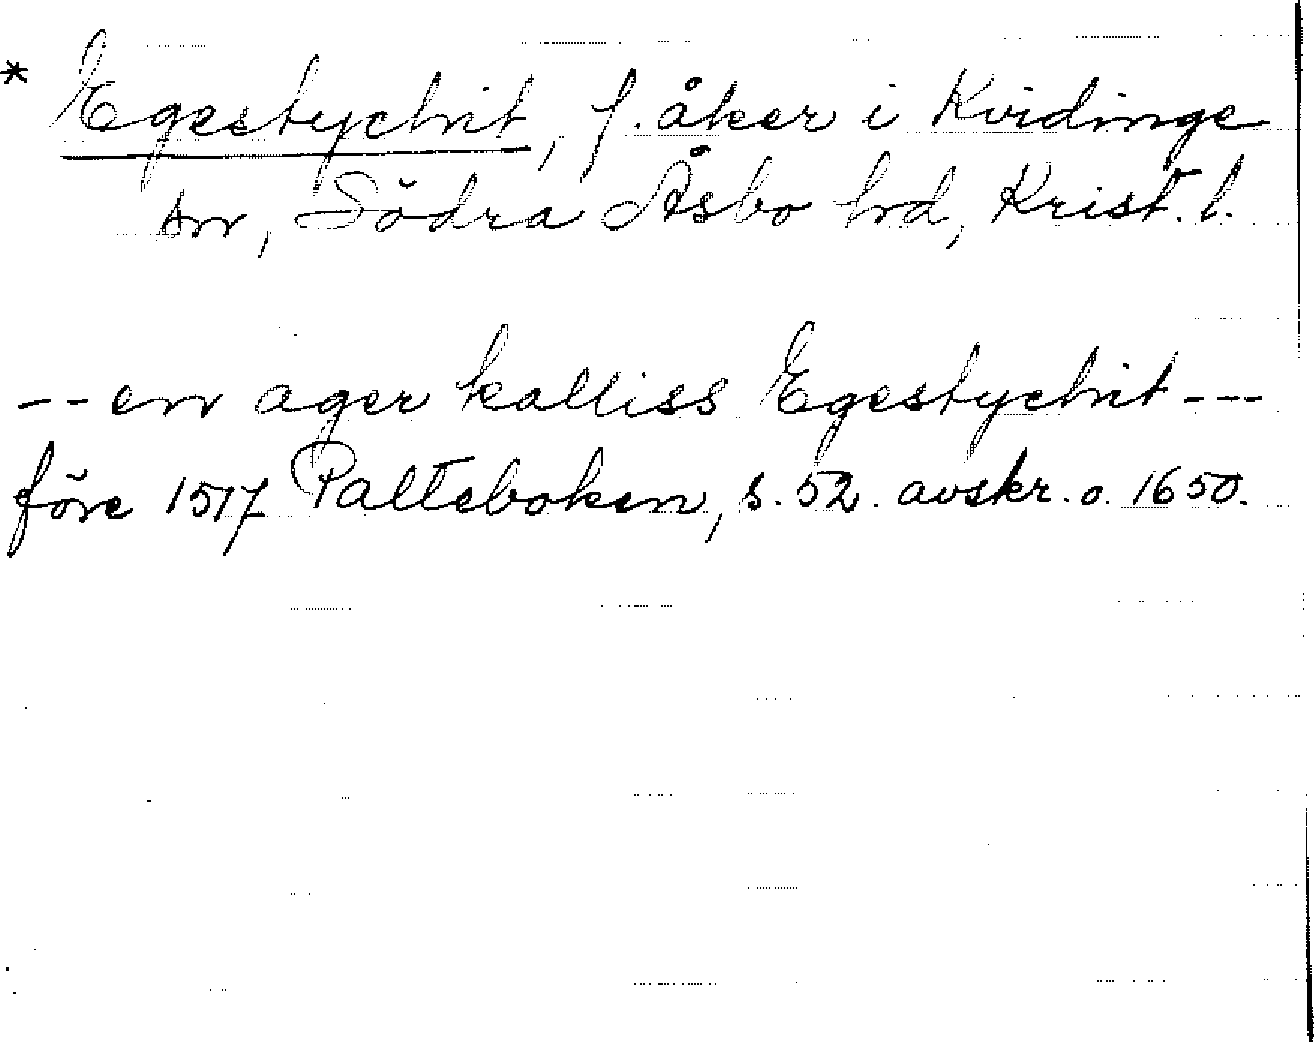 * Egestychrit, f. åker i Kvidinge
sn, Södra Åsbo hd, Krist. l.
-- en ager kalliss Egestychrit ---
före 1517 Palteboken, s. 52. avskr. o. 1650.